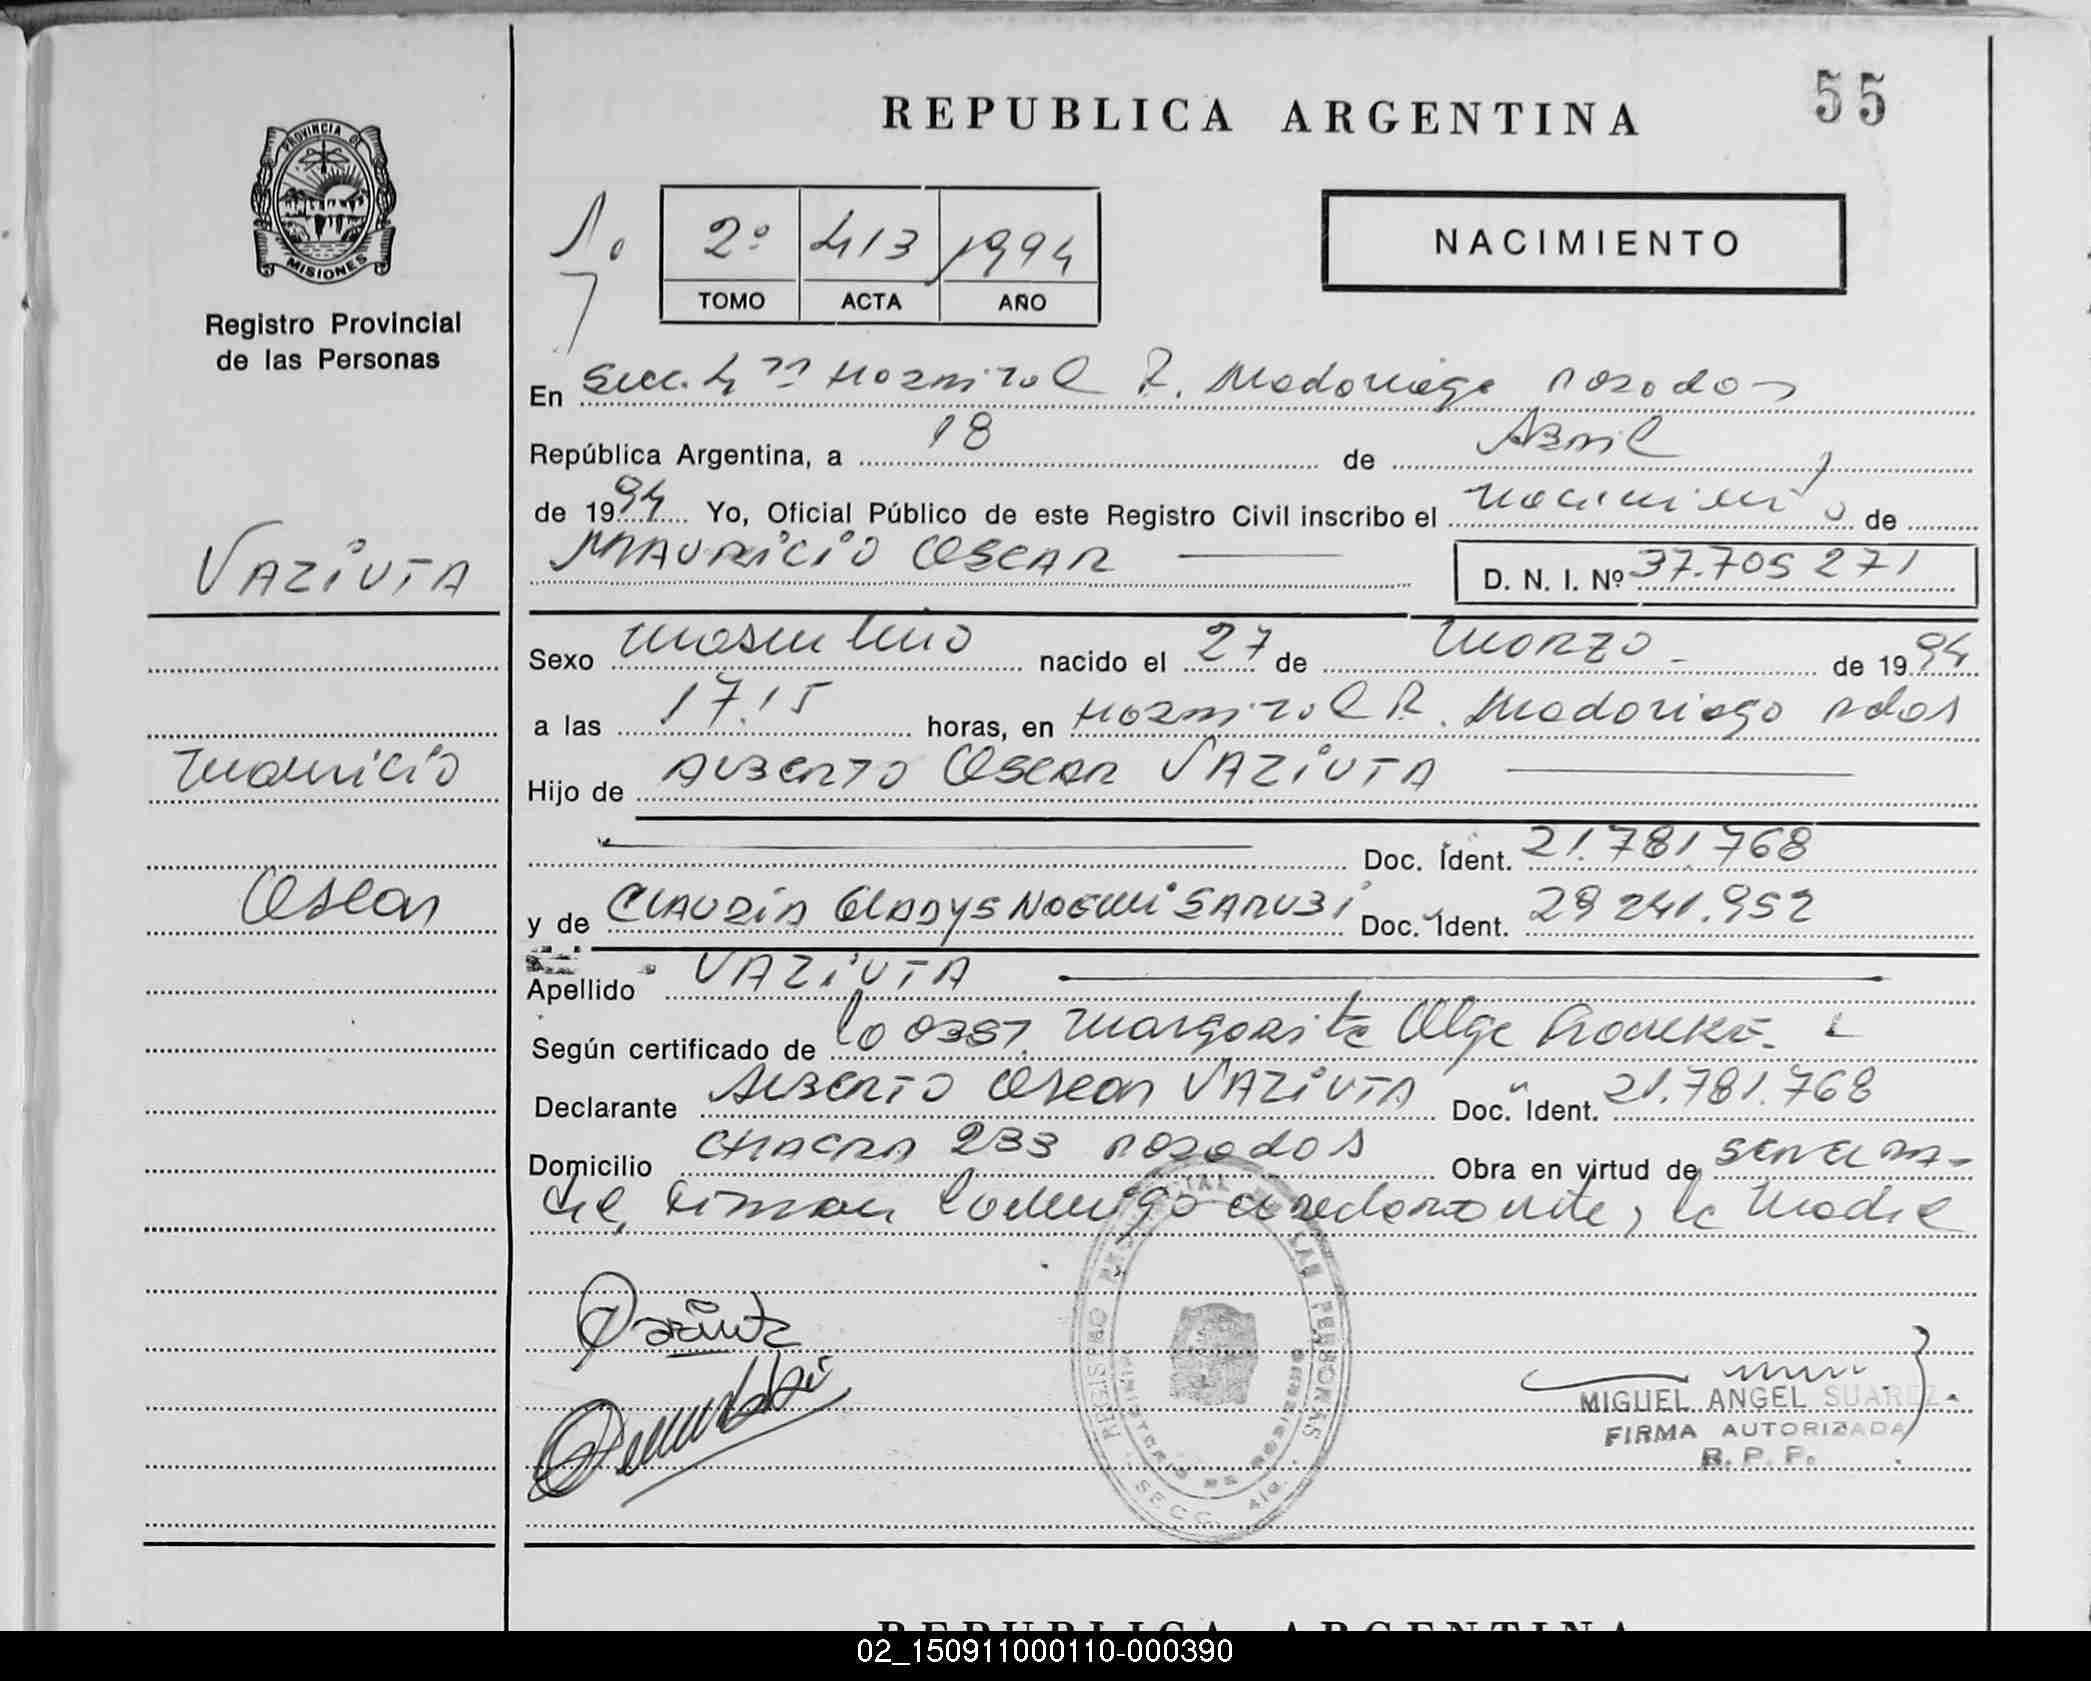 55
REPUBLICA ARGENTINA
PROVINCIA DE
MISIONES
Registro Provincial
de las Personas
2º 413 1994
TOMO ACTA AÑO
NACIMIENTO
En Secc. 4ta Hospital R. Madariaga Posadas
República Argentina, a 18 de Abril
de 1994 Yo, Oficial Público de este Registro Civil inscribo el nacimiento de
MAURICIO OSCAR
D. N. I. Nº 37.705 271
VAZIUTA
Sexo masculino nacido el 27 de marzo de 1994
a las 17.15 horas, en Hospital R. Madariaga Pdas
Mauricio
Hijo de ALBERTO OSCAR VAZIUTA
Doc. Ident. 21.781.768
Oscar
y de CLAUDIA GLADYS NOEMI SARUBI Doc. Ident. 29 241.952
Apellido VAZIUTA
Según certificado de la obst. Margarita Olga
Declarante ALBERTO Oscar VAZIUTA Doc. Ident. 21.781.768
Domicilio CHACRA 233 Posadas Obra en virtud de
firman conmigo el declarante, la madre
REGISTRO PROVINCIAL DE LAS PERSONAS
MINISTERIO DE GOBIERNO
SECC. 4ta.
MIGUEL ANGEL SUAREZ
FIRMA AUTORIZADA
R. P. P.
REPUBLICA ARGENTINA
02_150911000110-000390